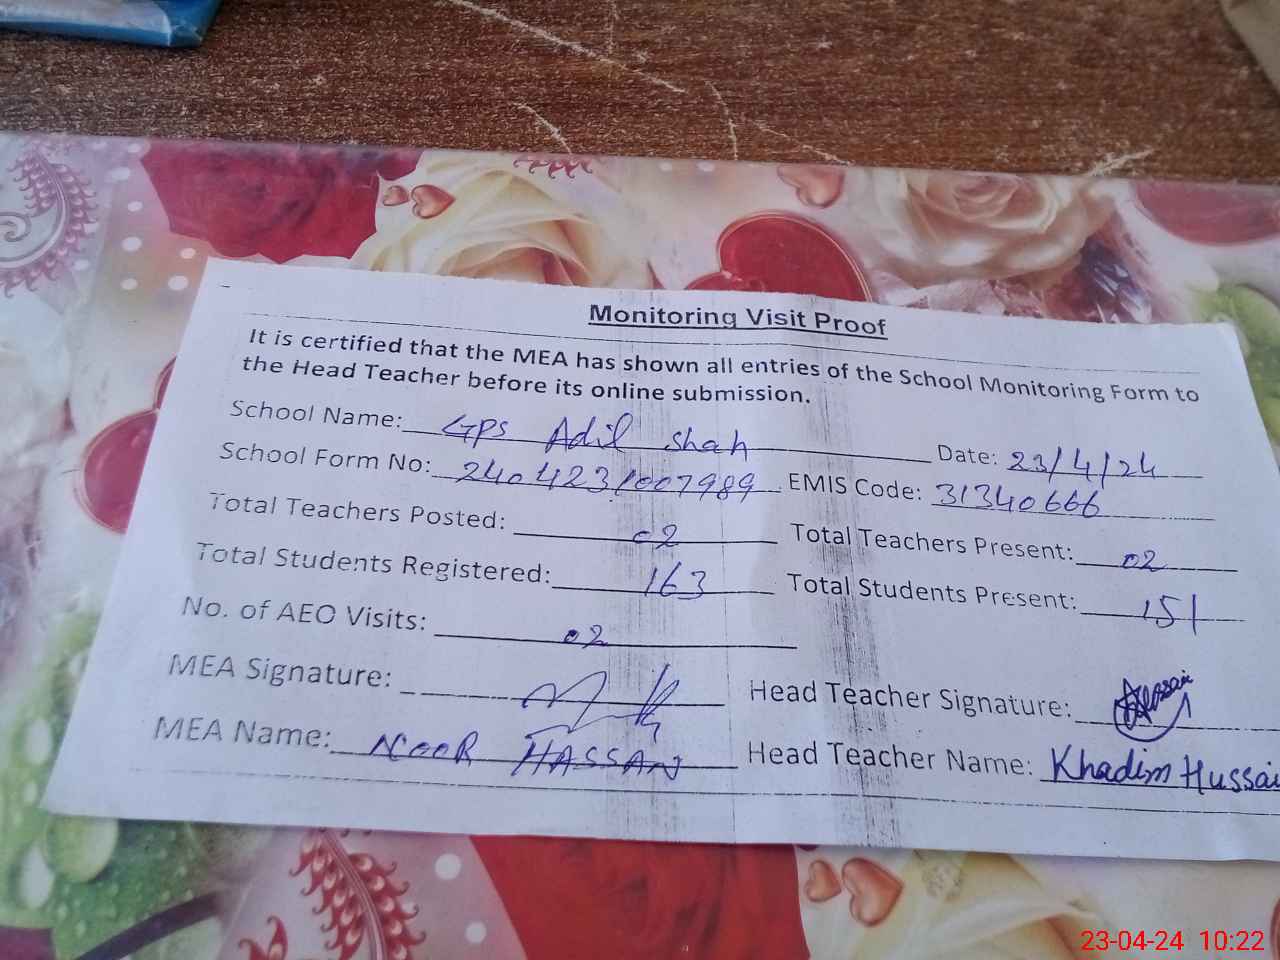 Monitoring Visit Proof
It is certified that the MEA has shown all entries of the School Monitoring Form to
the Head Teacher before its online submission.
School Name: GPS Adil Shah Date: 23/4/24
School Form No: 2404231007989 EMIS Code: 31340666
Total Teachers Posted: 02 Total Teachers Present: 02
Total Students Registered: 163 Total Students Present: 151
No. of AEO Visits: 02
MEA Signature: Head Teacher Signature:
MEA Name: NOOR HASSAN Head Teacher Name: Khadim Hussai
23-04-24 10:22